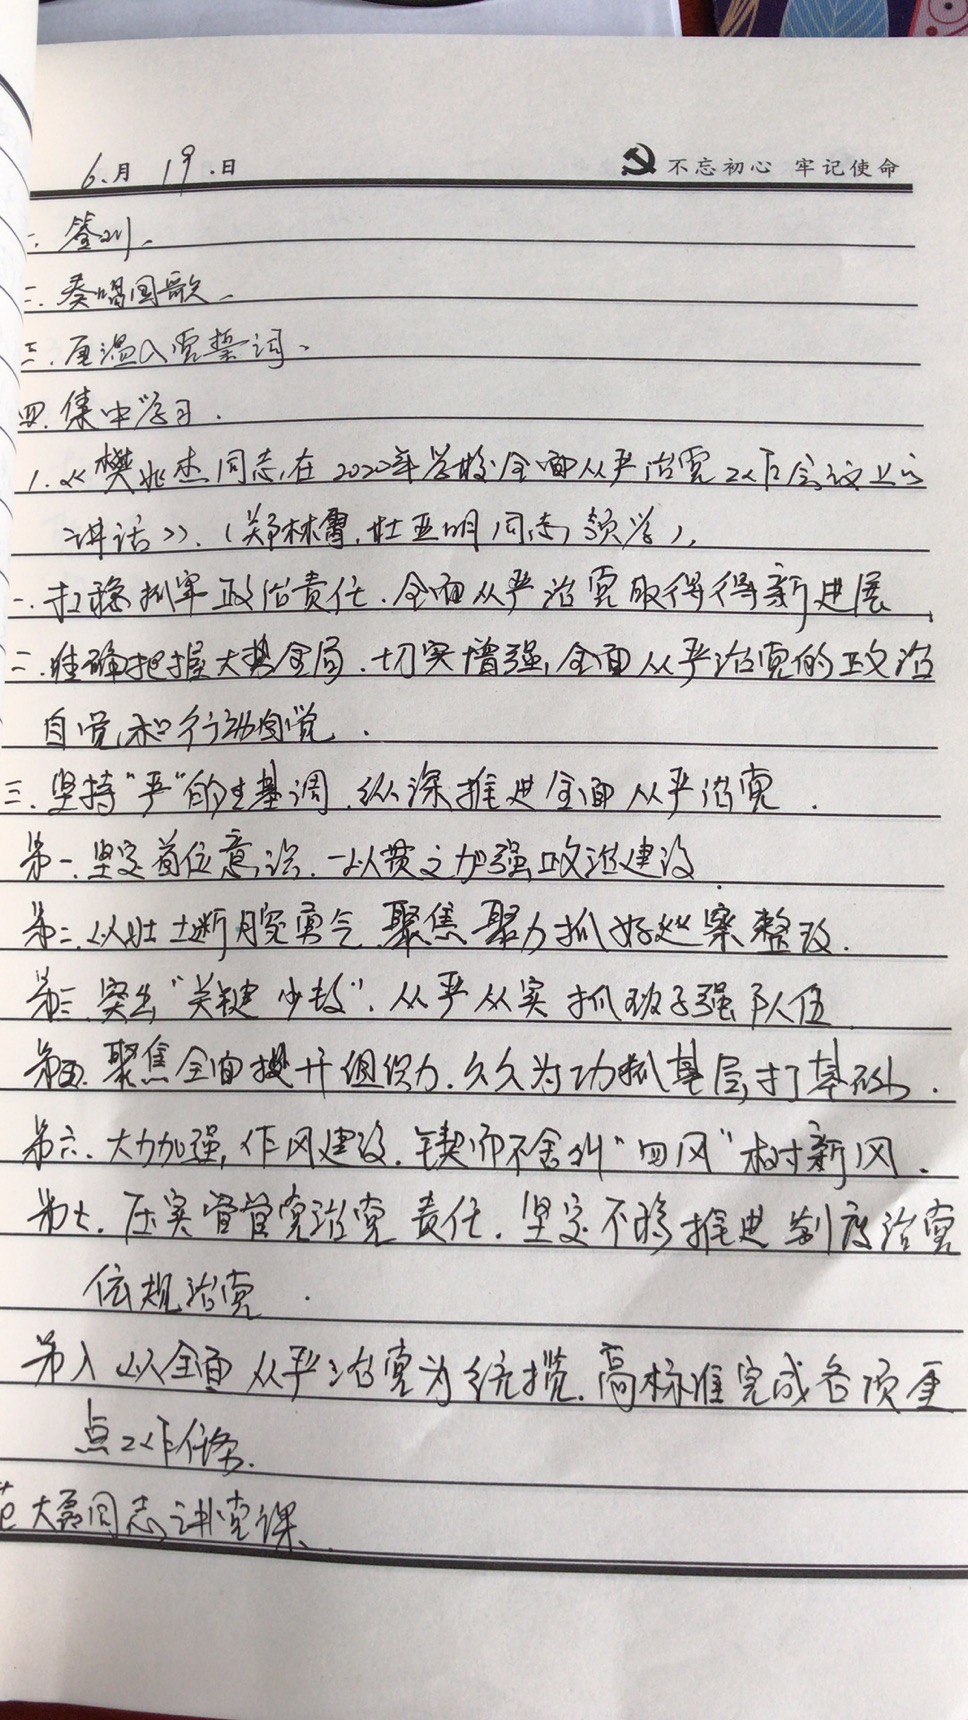 6.月 19.日
不忘初心 牢记使命
一. 签到.
二. 奏唱国歌.
三. 重温入党誓词.
四. 集中学习.
1.《樊兆杰同志在2022年学校全面从严治党工作会议上的
讲话》.(郑林雪.杜亚明同志领学).
一. 扛稳抓牢政治责任.全面从严治党取得得新进展.
二. 准确把握大势全局.切实增强全面从严治党的政治
自觉和行动自觉.
三. 坚持“严”的主基调.纵深推进全面从严治党.
第一.坚定首位意识.一以贯之加强政治建设.
第二.以壮士断腕勇气.聚焦聚力抓好巡察整改.
第三.突出“关键少数”.从严从实抓班子强队伍.
第五.聚焦全面提升组织力.久久为功抓基层打基础.
第六.大力加强作风建设.锲而不舍纠“四风”树新风.
第七.压实管党治党责任.坚定不移推进制度治党
依规治党.
第八 以全面从严治党为统揽.高标准完成各项重
点工作任务.
范大磊同志讲党课.